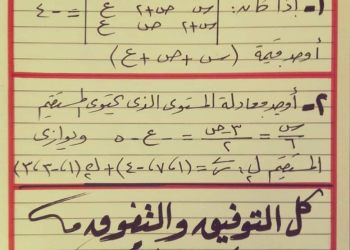 ١- إذا كان: | س ص+٢ ع | = -٤
| س+٢ ص ع |
أوجد قيمة (س + ص + ع)
٢- أوجد معادلة المستوى الذي يحتوي المستقيم
س/٦ = (٣-ص)/٢ = -ع-٥ ويوازي
المستقيم ل٢: ر = (١،٧،-٤) + ك(١،-٣،٣)
كل التوفيق والتفوق